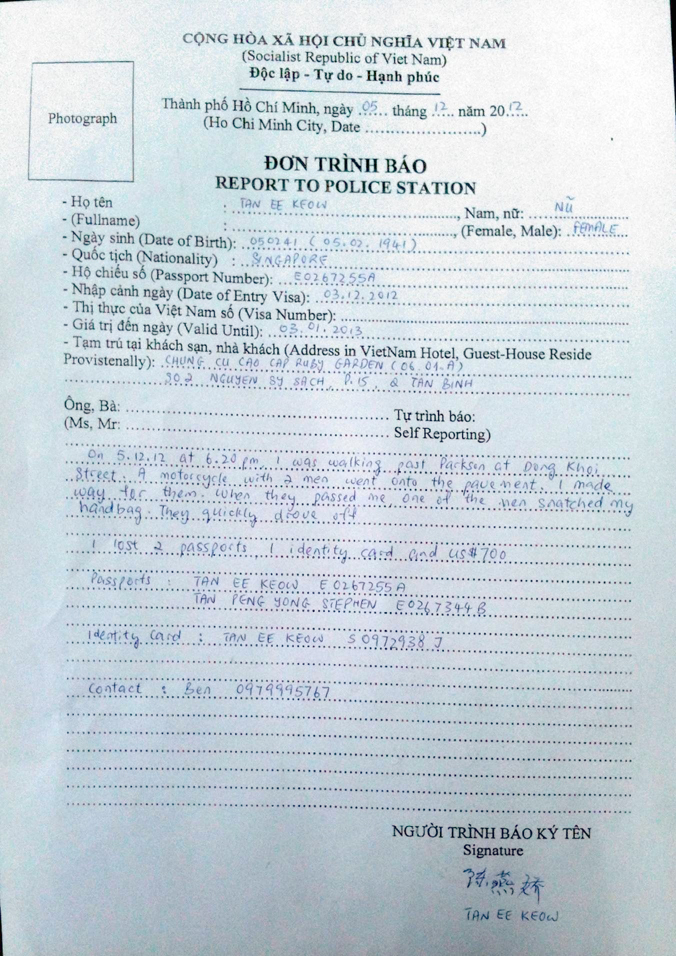 CỘNG HÒA XÃ HỘI CHỦ NGHĨA VIỆT NAM
(Socialist Republic of Viet Nam)
Độc lập - Tự do - Hạnh phúc
Photograph
Thành phố Hồ Chí Minh, ngày 05 tháng 12 năm 2012
(Ho Chi Minh City, Date ........................)
ĐƠN TRÌNH BÁO
REPORT TO POLICE STATION
- Họ tên : TAN EE KEOW, Nam, nữ: NỮ
- (Fullname) : , (Female, Male): FEMALE
- Ngày sinh (Date of Birth): 050241 (05.02.1941)
- Quốc tịch (Nationality) : SINGAPORE
- Hộ chiếu số (Passport Number): E0267255A
- Nhập cảnh ngày (Date of Entry Visa): 03.12.2012
- Thị thực của Việt Nam số (Visa Number):
- Giá trị đến ngày (Valid Until): 03.01.2013
- Tạm trú tại khách sạn, nhà khách (Address in VietNam Hotel, Guest-House Reside
Provistenally): CHUNG CU CAO CAP RUBY GARDEN (06.01-A)
SO 2 NGUYEN SY SACH, P.15, Q TAN BINH
Ông, Bà: Tự trình báo:
(Ms, Mr: Self Reporting)
On 5.12.12 at 6.20 pm, I was walking past Parkson at Dong Khoi
Street. A motorcycle with 2 men went onto the pavement. I made
way for them. When they passed me, one of the men snatched my
handbag. They quickly drove off
I lost 2 passports 1 identity card and US$700
Passports : TAN EE KEOW E0267255A
TAN PENG YONG STEPHEN E0267344B
Identity Card : TAN EE KEOW S0972938J
Contact : Ben 0979995767
NGƯỜI TRÌNH BÁO KÝ TÊN
Signature
陈燕娇
TAN EE KEOW